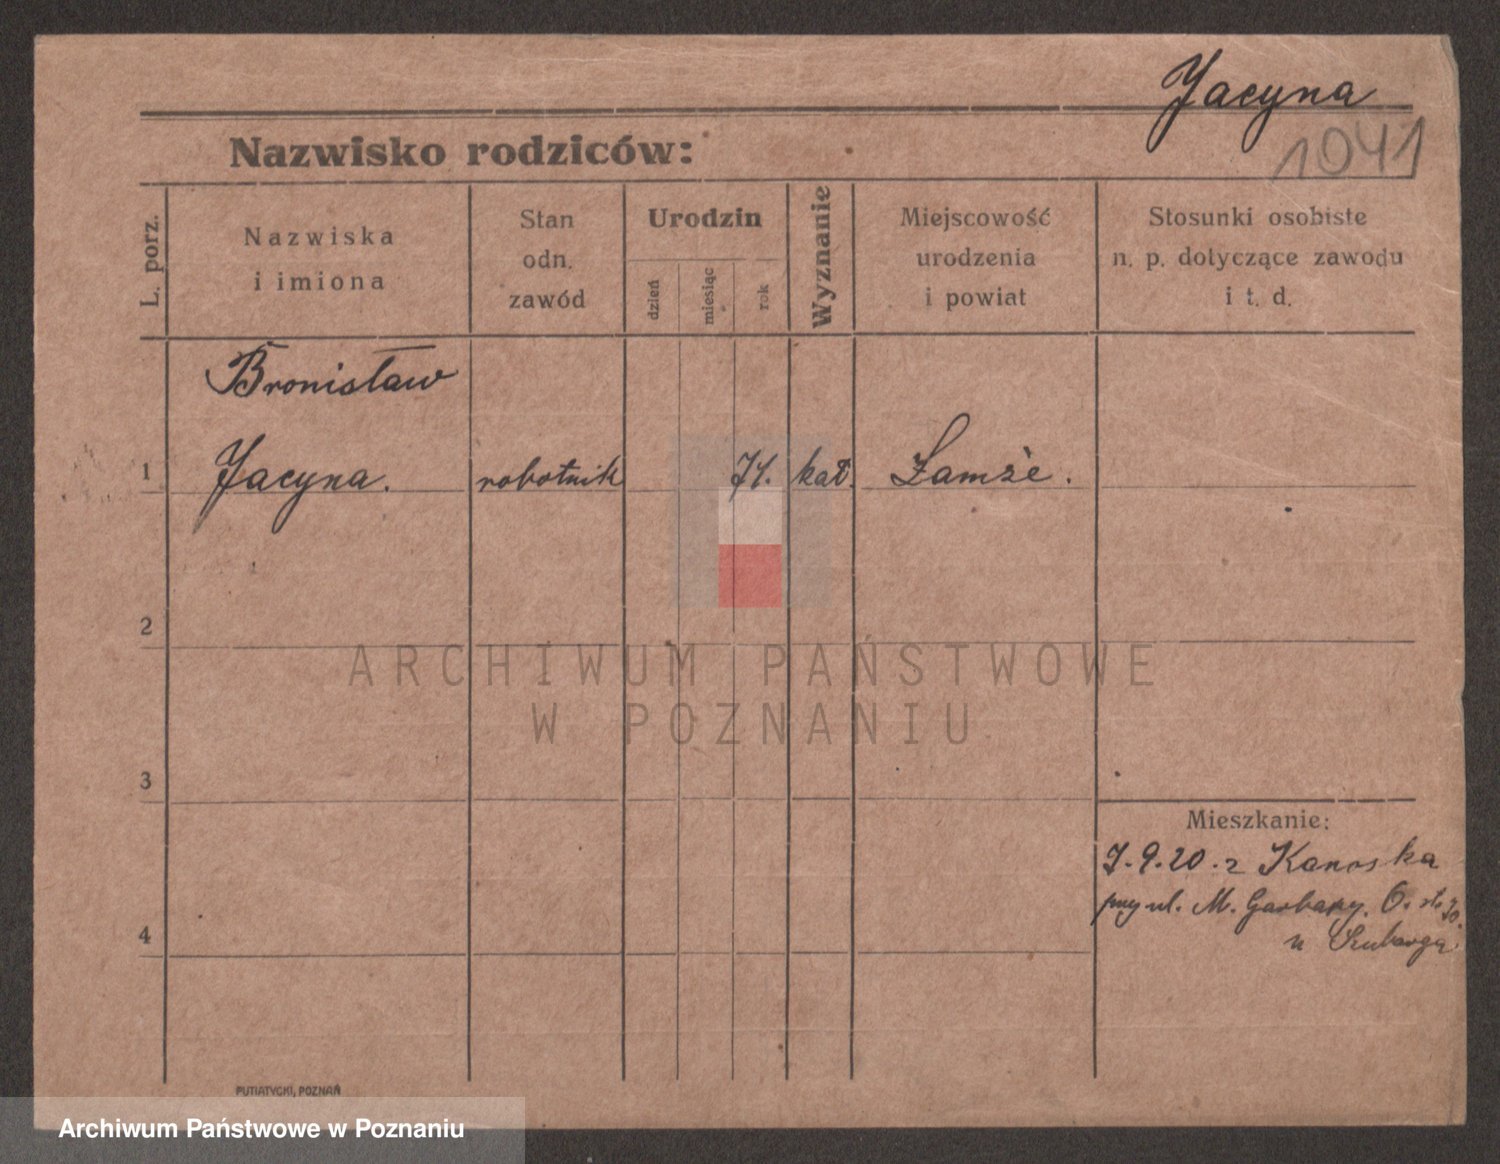 Jacyna
1041
Nazwisko rodziców:
L. porz.
Nazwiska
i imiona
Stan
odn.
zawód
Urodzin
dzień
miesiąc
rok
Wyznanie
Miejscowość
urodzenia
i powiat
Stosunki osobiste
n. p. dotyczące zawodu
i t. d.
Bronisław
1 Jacyna. robotnik 71. kat. Łamże.
2
3
4
Mieszkanie:
7.9.20. z Kanoska
przy ul. M. Garbary. 6.
u
PUTIATYCKI, POZNAŃ
ARCHIWUM PAŃSTWOWE
W POZNANIU
Archiwum Państwowe w Poznaniu